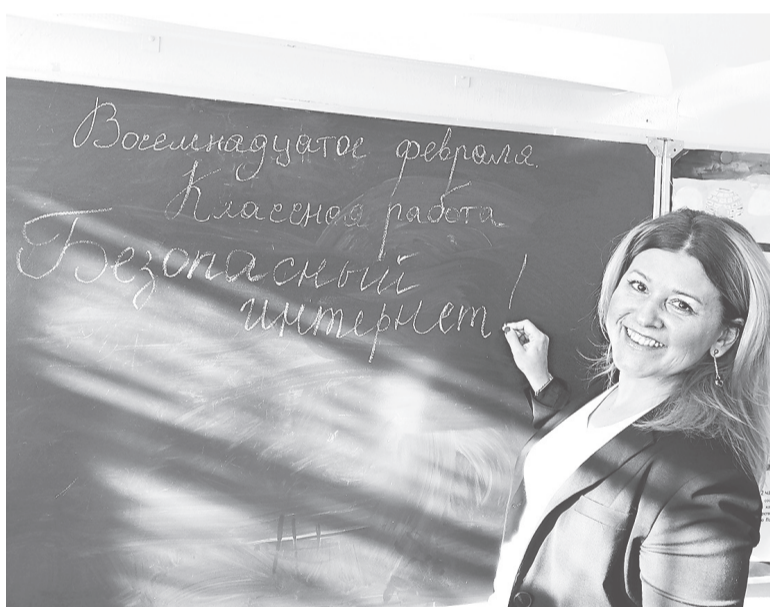 Восемнадцатое февраля.
Классная работа
Безопасный
интернет!